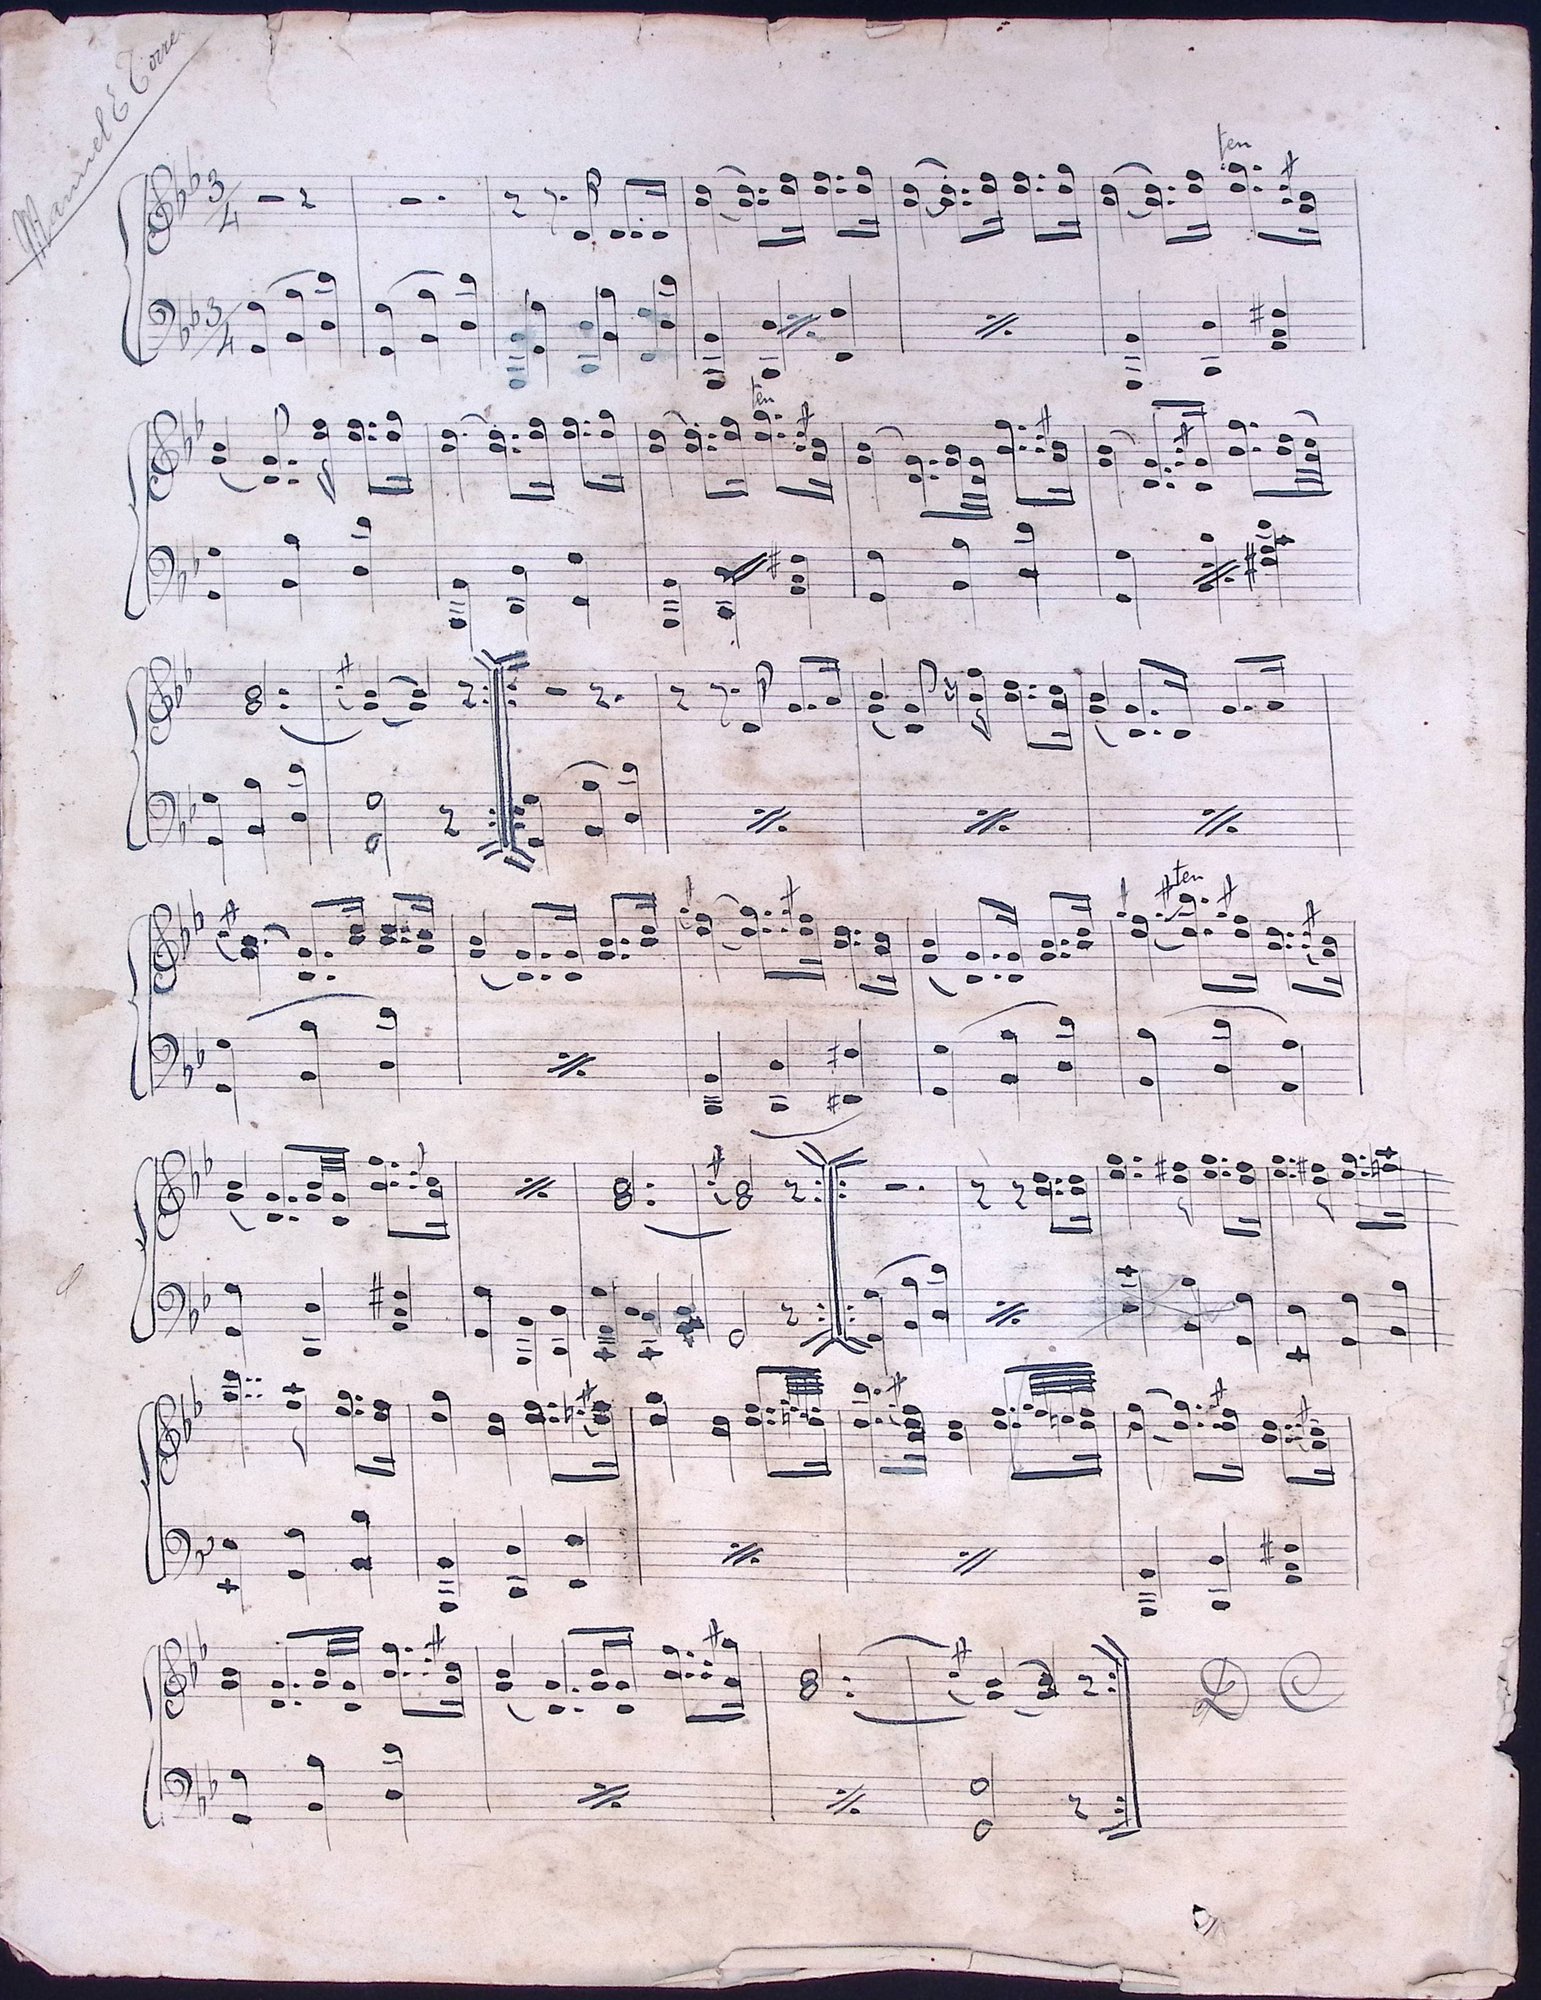 Manuel E Torre
3/4
ten
3/4
ten
ten
D C